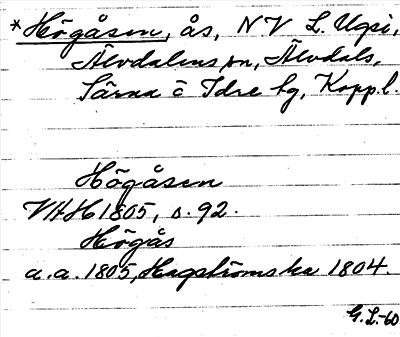 *Högåsen, ås, NV L. Ugsi,
Älvdalens sn, Älvdals,
Särna o Idre tg, Koppl.
Högåsen
VAH 1805, s. 92.
Högås
a.a. 1805, Hagströms ka 1804.
G.L.-60